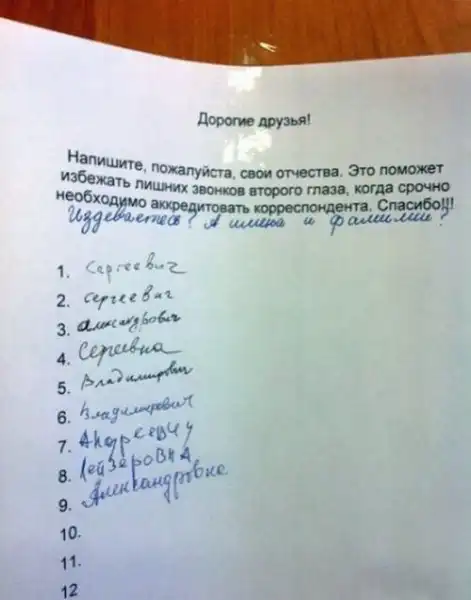 Дорогие друзья!
Напишите, пожалуйста, свои отчества. Это поможет
избежать лишних звонков второго глаза, когда срочно
необходимо аккредитовать корреспондента. Спасибо!!!
Издеваетесь? А имена и фамилии?
1. Сергеевич
2. Сергеевич
3. Александрович
4. Сергеевна
5. Владимирович
6. Владимирович
7. Андреевич
8. Лейзеровна
9. Александровна
10.
11.
12